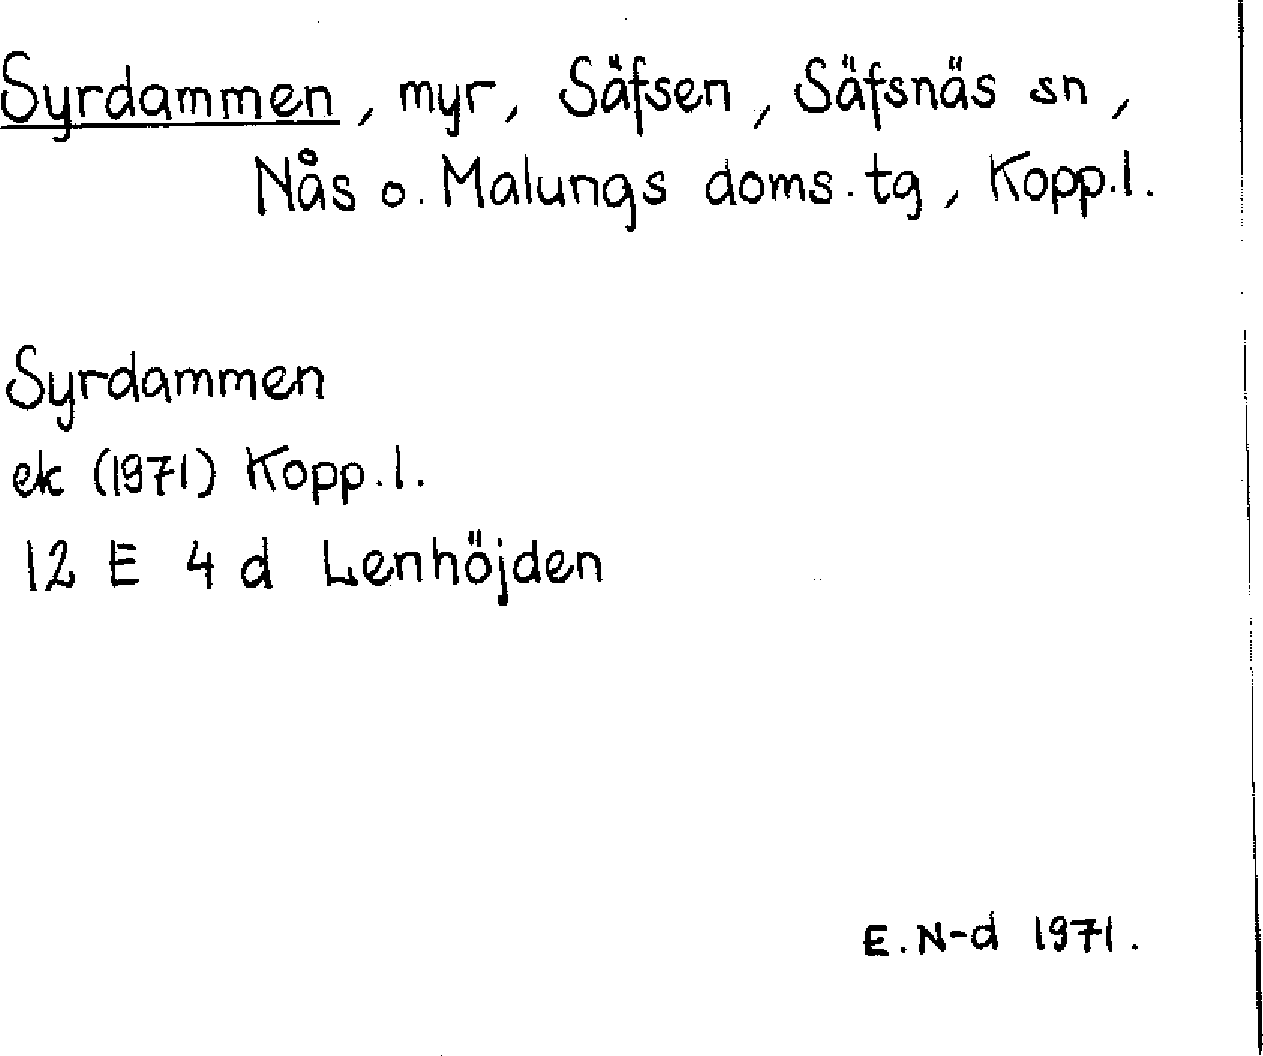 Syrdammen, myr, Säfsen, Säfsnäs sn,
Nås o. Malungs doms.tg, Kopp.l.
Syrdammen
ek (1971) Kopp.l.
12 E 4 d Lenhöjden
E.N-d 1971.